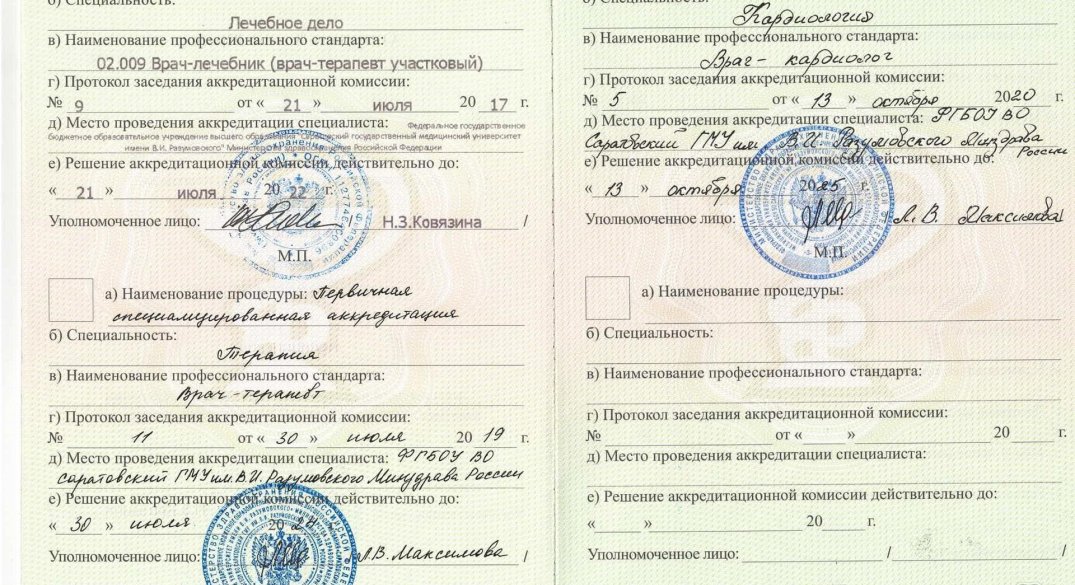 б) Специальность:
Лечебное дело
в) Наименование профессионального стандарта:
02.009 Врач-лечебник (врач-терапевт участковый)
г) Протокол заседания аккредитационной комиссии:
№ 9 от « 21 » июля 20 17 г.
д) Место проведения аккредитации специалиста: Федеральное государственное
бюджетное образовательное учреждение высшего образования "Саратовский государственный медицинский университет
имени В.И. Разумовского" Министерства здравоохранения Российской Федерации
е) Решение аккредитационной комиссии действительно до:
« 21 » июля 20 22 г.
Уполномоченное лицо: / Н.З.Ковязина /
М.П.
а) Наименование процедуры: Первичная
специализированная аккредитация
б) Специальность:
Терапия
в) Наименование профессионального стандарта:
Врач-терапевт
г) Протокол заседания аккредитационной комиссии:
№ 11 от « 30 » июля 20 19 г.
д) Место проведения аккредитации специалиста: ФГБОУ ВО
Саратовский ГМУ им. В.И. Разумовского Минздрава России
е) Решение аккредитационной комиссии действительно до:
« 30 » июля 20 24 г.
Уполномоченное лицо: Л.В. Максимова /
б) Специальность:
Кардиология
в) Наименование профессионального стандарта:
Врач-кардиолог
г) Протокол заседания аккредитационной комиссии:
№ 5 от « 13 » октября 2020 г.
д) Место проведения аккредитации специалиста: ФГБОУ ВО
Саратовский ГМУ им. В.И. Разумовского Минздрава
России
е) Решение аккредитационной комиссии действительно до:
« 13 » октября 2025 г.
Уполномоченное лицо: Л.В. Максимова
М.П.
а) Наименование процедуры:
б) Специальность:
в) Наименование профессионального стандарта:
г) Протокол заседания аккредитационной комиссии:
№ от « » 20 г.
д) Место проведения аккредитации специалиста:
е) Решение аккредитационной комиссии действительно до:
« » 20 г.
Уполномоченное лицо: / /